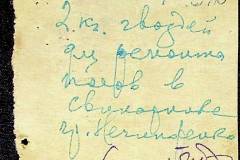 2 кг. гвоздей
для ремонта
полов в
свинарнике
гр. Нечипоренко